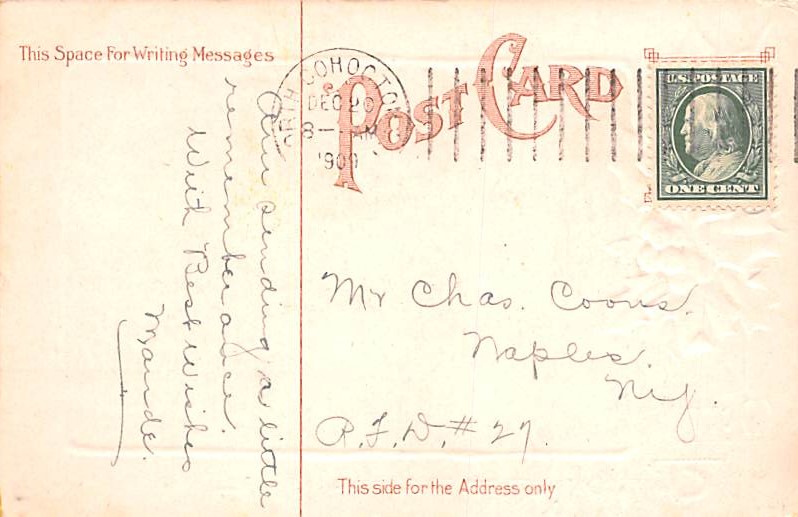 This Space For Writing Messages
POST CARD
NORTH COHOCTON
DEC 20
8 - AM
1909
U.S. POSTAGE
ONE CENT
Am sending a little
rememberance.
With Best Wishes
Maude.
Mr Chas. Coons.
Naples.
N.Y.
R.F.D. # 27.
This side for the Address only